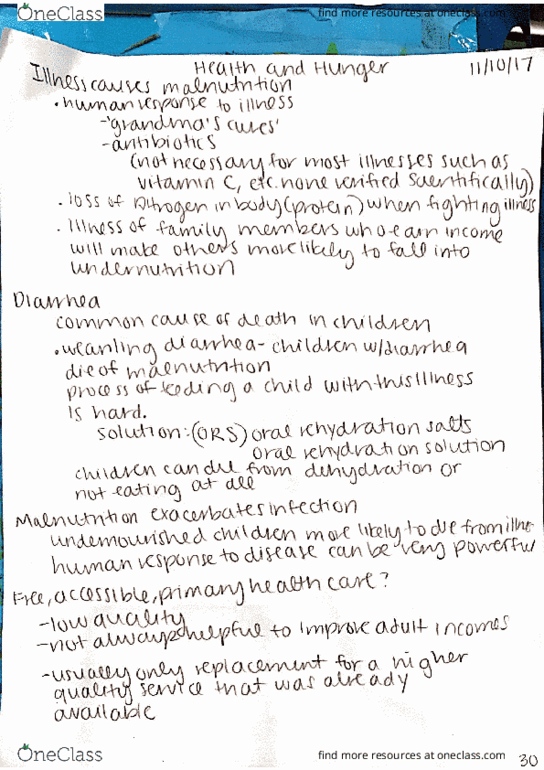 OneClass
find more resources at oneclass.com
Health and Hunger 11/10/17
Illness causes malnutrition
• human response to illness
- 'grandma's cures'
- antibiotics
(not necessary for most illnesses such as
vitamin C, etc. none verified scientifically)
• loss of nitrogen in body (protein) when fighting illness
• illness of family members who earn income
will make others more likely to fall into
undernutrition
Diarrhea
common cause of death in children
• weanling diarrhea - children w/diarrhea
die of malnutrition
process of feeding a child with this illness
is hard.
solution: (ORS) oral rehydration salts
oral rehydration solution
children can die from dehydration or
not eating at all
Malnutrition exacerbates infection
undernourished children more likely to die from illne
human response to disease can be very powerful
Free, accessible, primary health care?
- low quality
- not always helpful to improve adult incomes
- usually only replacement for a higher
quality service that was already
available
OneClass
find more resources at oneclass.com
30